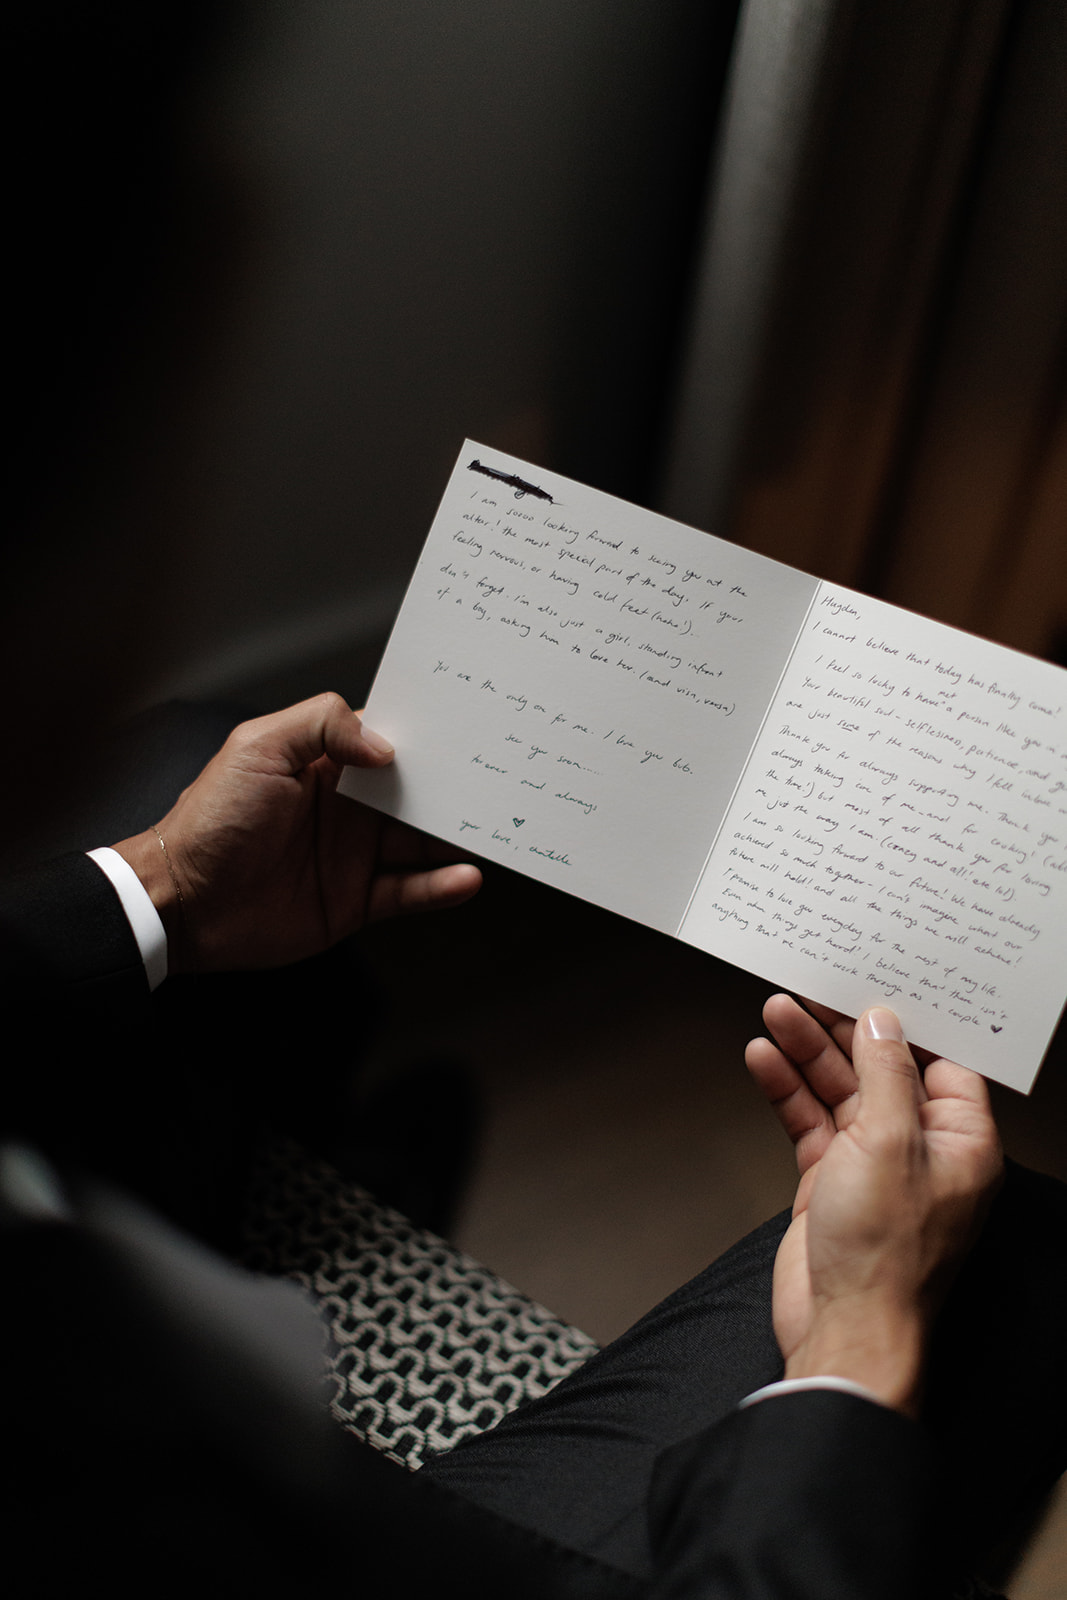 I am soooo looking forward to seeing you at the
altar! the most special part of the day. If your
feeling nervous, or having cold feet (haha!)...
don't forget. I'm also just a girl, standing infront
of a boy, asking him to love her. (and visa, versa)
You are the only one for me. I love you bub.
see you soon......
forever and always
♥
your love, chantelle
Hayden,
I cannot believe that today has finally come!
I feel so lucky to have met a person like you in
Your beautiful soul - selflessness, patience, and
are just some of the reasons why I fell inlove
Thank you for always supporting me. Thank you
always taking care of me and for cooking! (all
the time!) but most of all thank you for loving
me just the way I am. (crazy and all! etc lol).
I am so looking forward to our future! We have already
achieved so much together - I can't imagine what our
future will hold! and all the things we will achieve!
I promise to love you everyday for the rest of my life.
Even when things get hard! I believe that there isn't
anything that we can't work through as a couple ♥